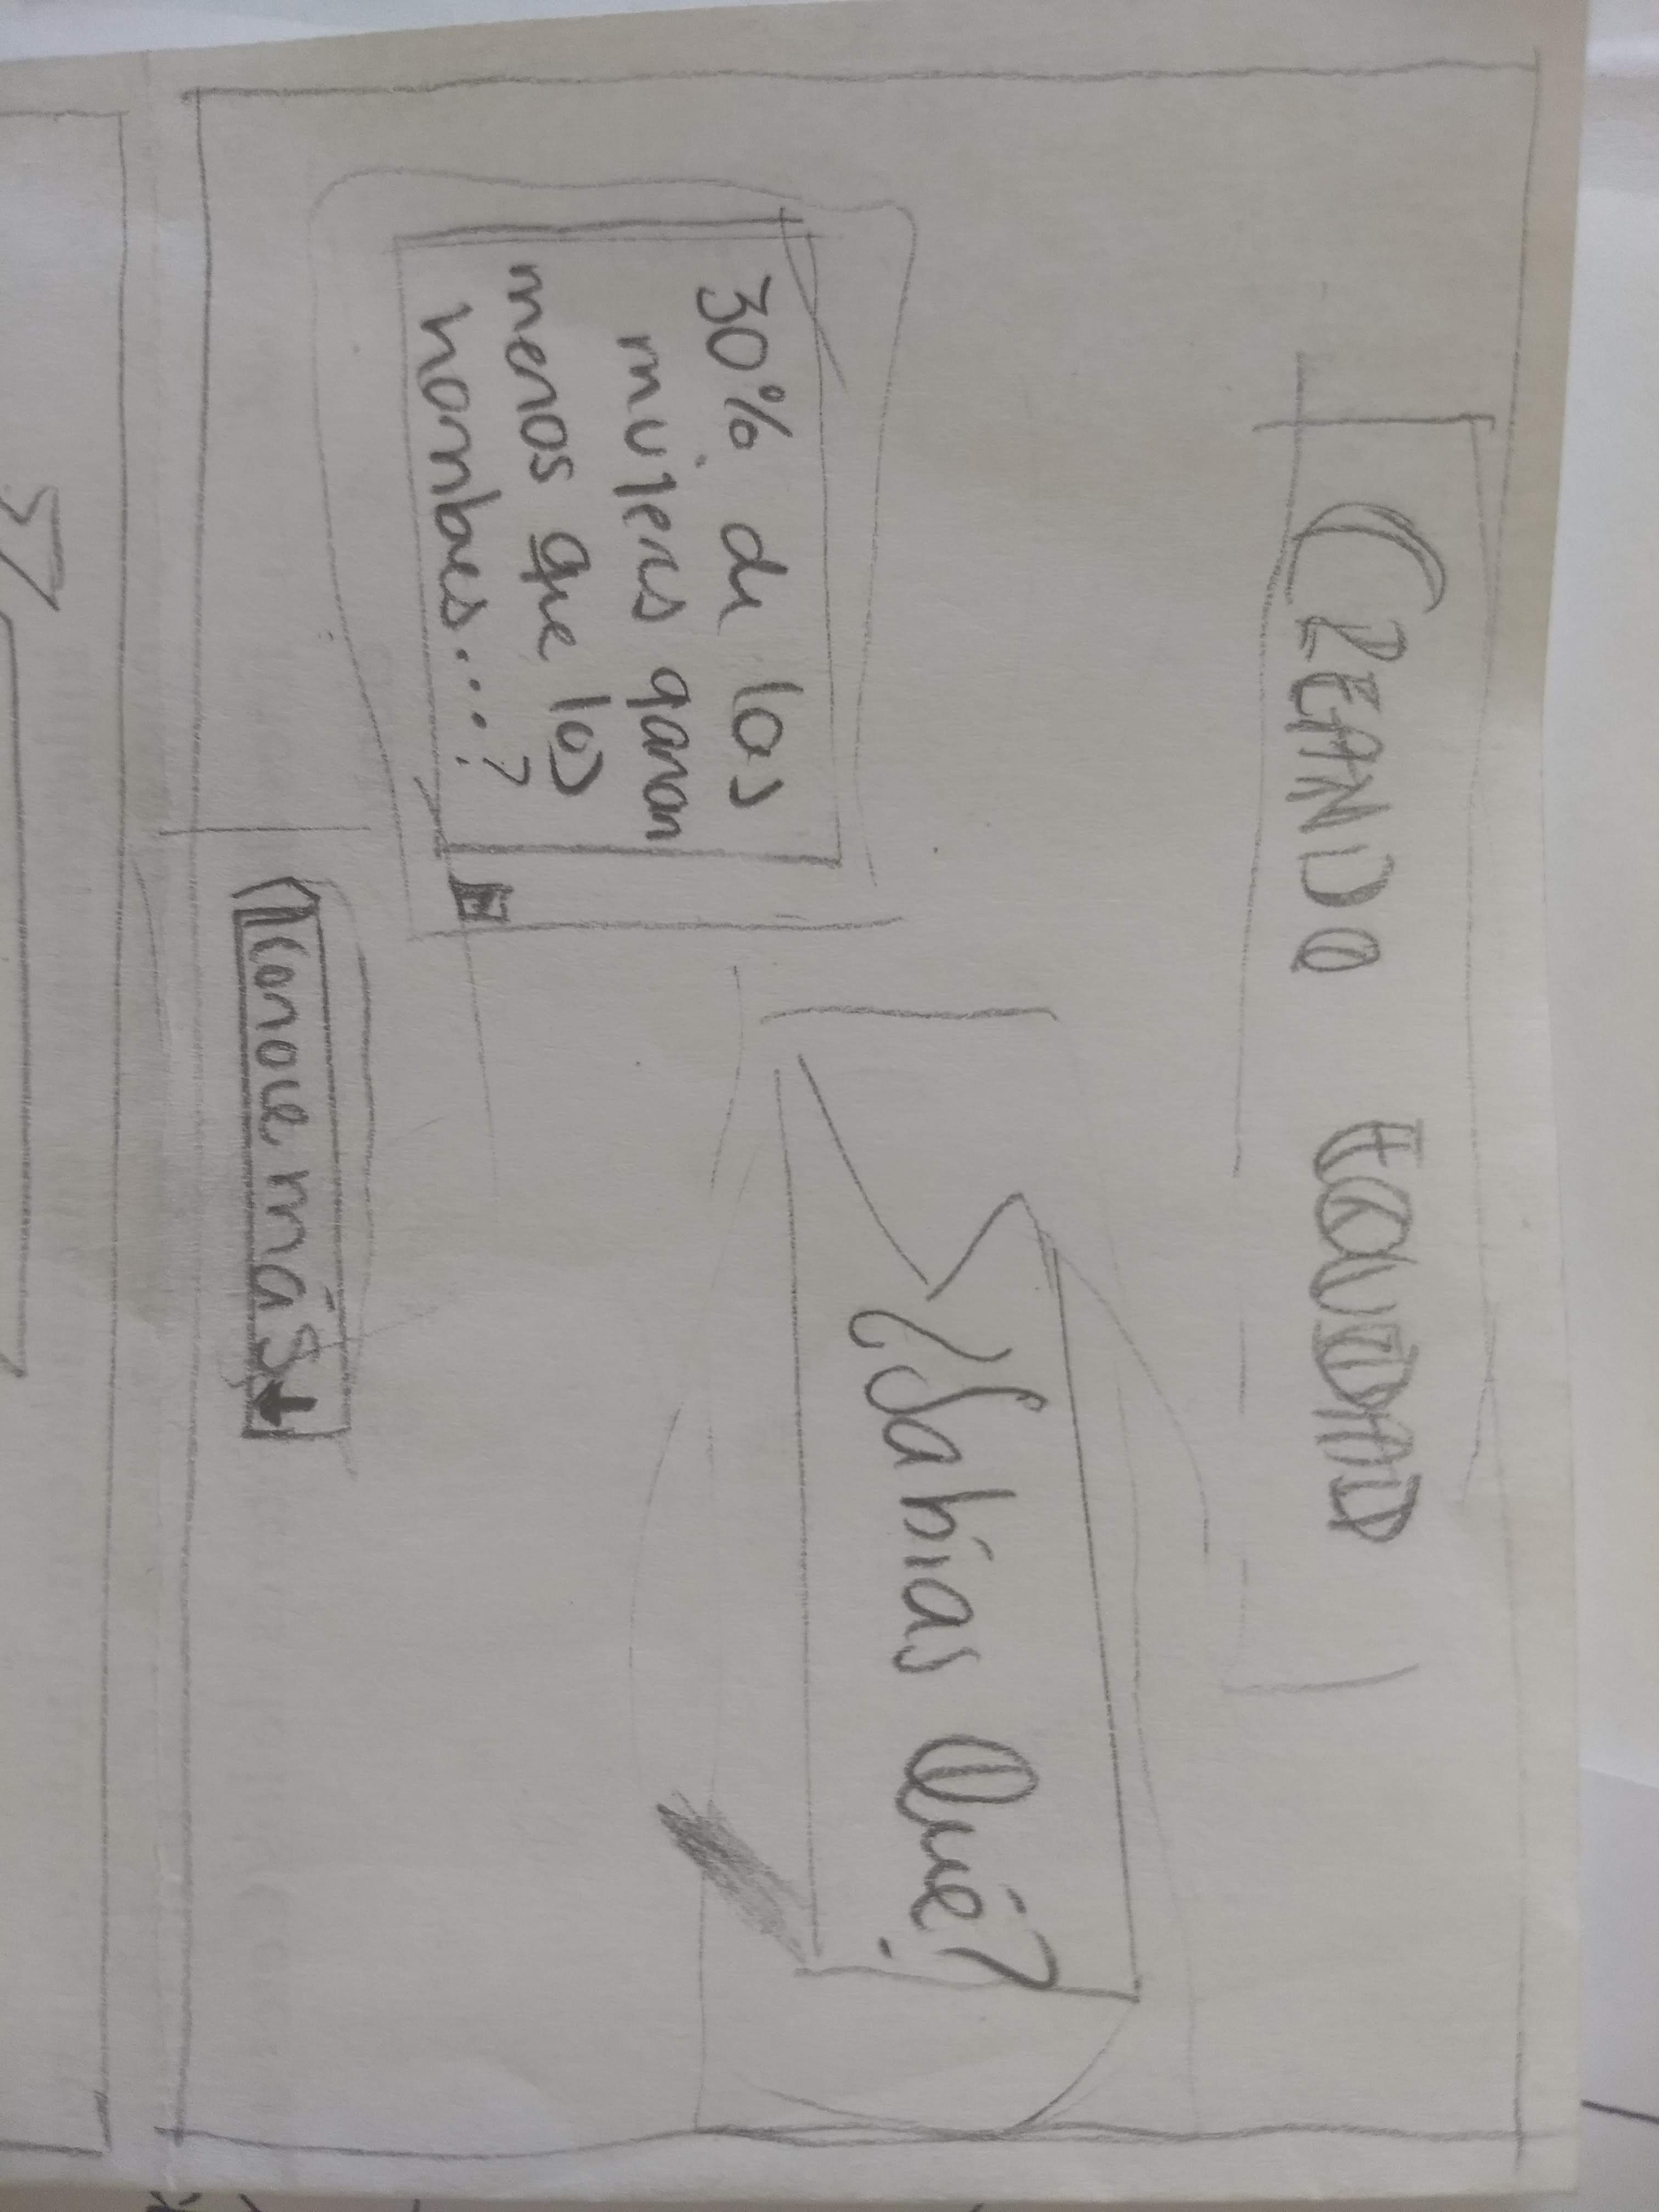 CREANDO EQUIDAD
¿Sabías Qué?
30% de las
mujeres ganan
menos que los
hombres...?
Conoce más